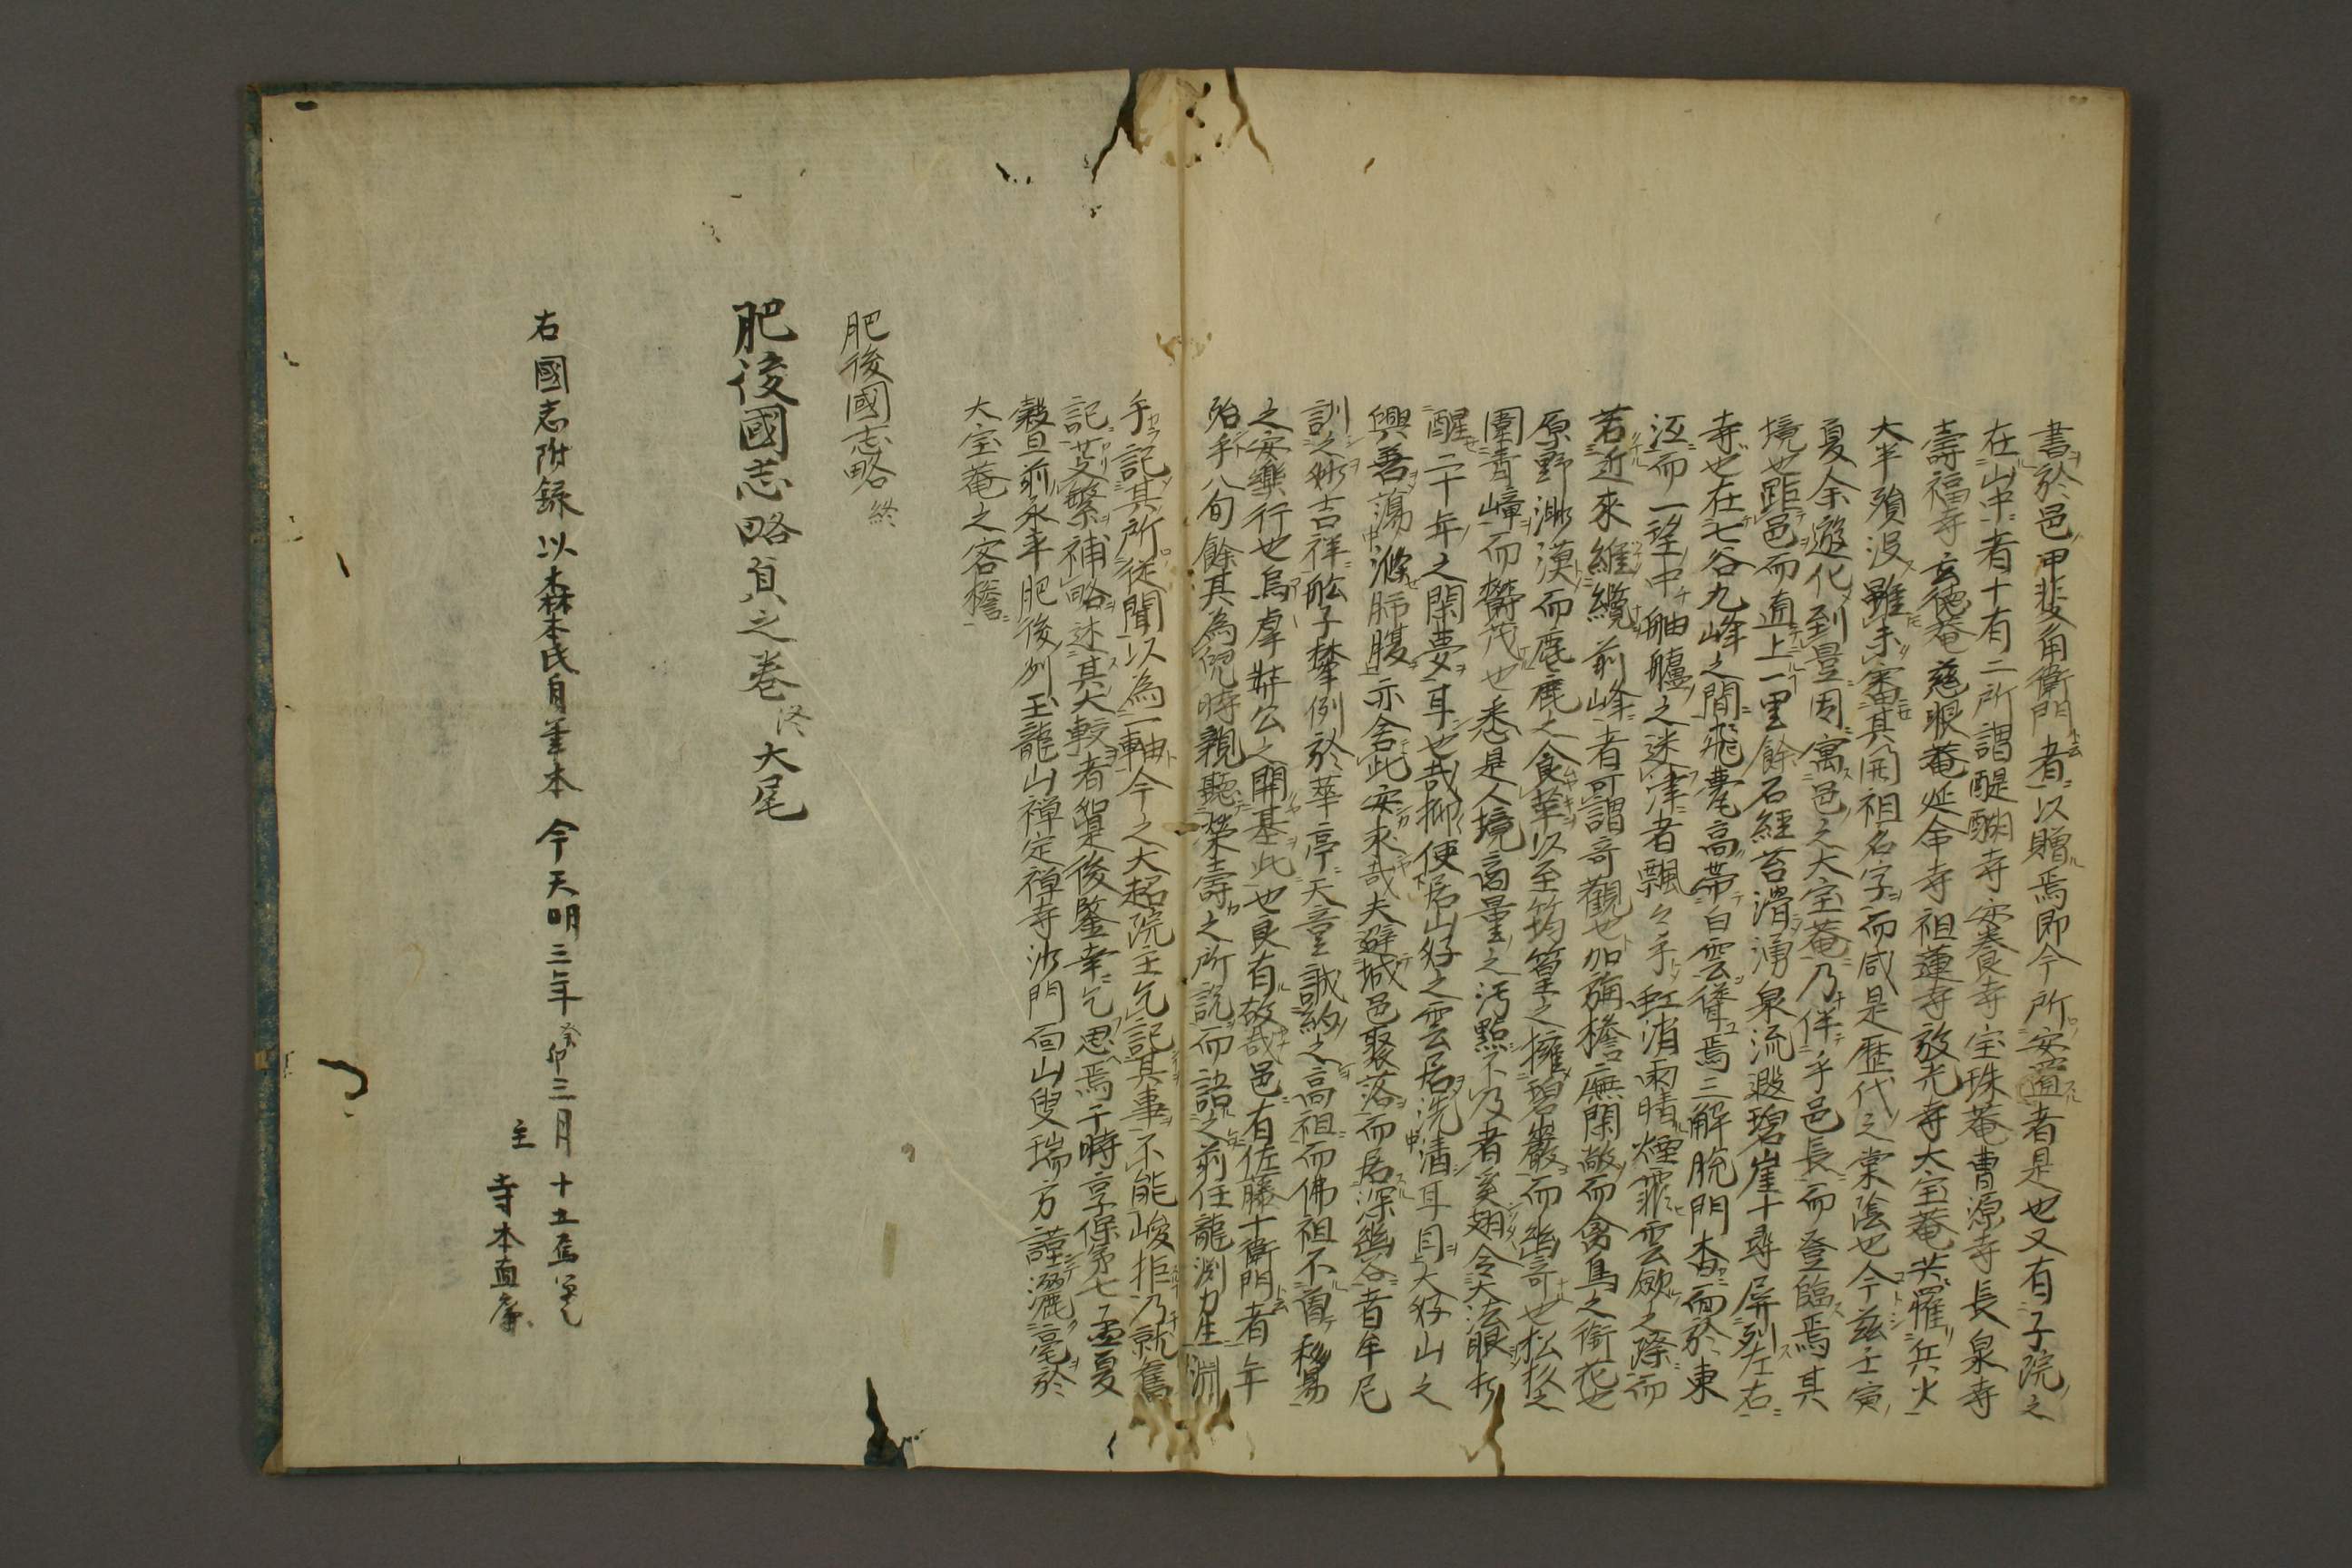 書於邑甲斐角衛門者以贈焉即今所安置者是也又有子院之
在山中者十有二所謂醍醐寺安養寺宝珠菴曹源寺長泉寺
壽福寺玄德菴慈眼菴延命寺祖蓮寺放光寺大宝菴共罹兵火
大半殞没雖未審其開祖名字而咸是歴代之棠陰也今茲壬寅
夏余遊化到豊因寓邑之大宝菴乃伴手邑長而登臨焉其
境也距邑而直上一里餘石經苔滑湧泉流遐碧崖十尋屏列左右
寺也在七谷九峰之間飛甍高帶白雲聳焉三解脱門杳而於東
汪而一望中舳艫之迷津者飄々乎虹消雨晴煙霏雲歛之際而
若近來維纜前峰者可謂奇觀也加旃檐廡閑敞而禽鳥之銜花也
原野渺漠而麀鹿之食苹以至筠篁之擁碧巖而幽奇也松杉之
圍青嶂而欝茂也悉是人境高量之汚點不及者奚翅令大法眼打
醒二十年之閑夢耳也哉抑使居山好之雲居洗清耳目大好山之
興善蕩滌肺腹亦舍此安求哉夫避城邑聚落而居深幽谷者牟尼
訓之妙吉祥舩子擧例於華亭天童誠約之高祖而佛祖不舊移易
之安樂行也烏虖弉公之開基此也良有故哉邑有佐藤十衛門者年
殆乎八旬餘其為兒時親聽榮壽之所説而語之前住龍渕力生渊
手記其所從聞以為一軸今之大超院主乞記其事不能峻拒乃就舊
記芟繁補略述其大較者留是後鑒幸乞思焉于時享保第七孟夏
穀旦前永平肥後列玉龍山禅定禅寺沙門面山叟瑞方謹灑毫於
大宝菴之客檐
肥後國志略 終
肥後國志略貞之巻 終 大尾
右國志附録以森本氏自筆本 今天明三年癸卯三月十五
主 寺本直廉